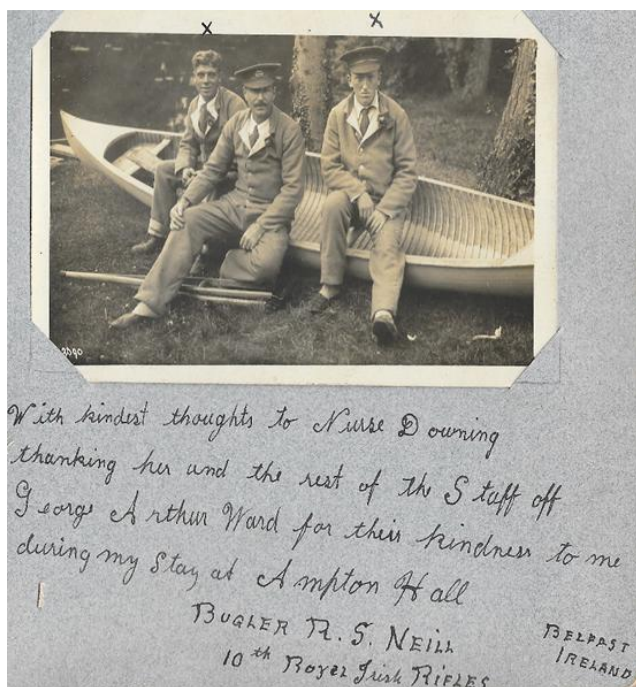 x x
2390
With kindest thoughts to Nurse Downing
thanking her and the rest of the Staff off
George Arthur Ward for their kindness to me
during my Stay at Ampton Hall
BUGLER R. S. NEILL
10th Royal Irish RIFLES
BELFAST
IRELAND